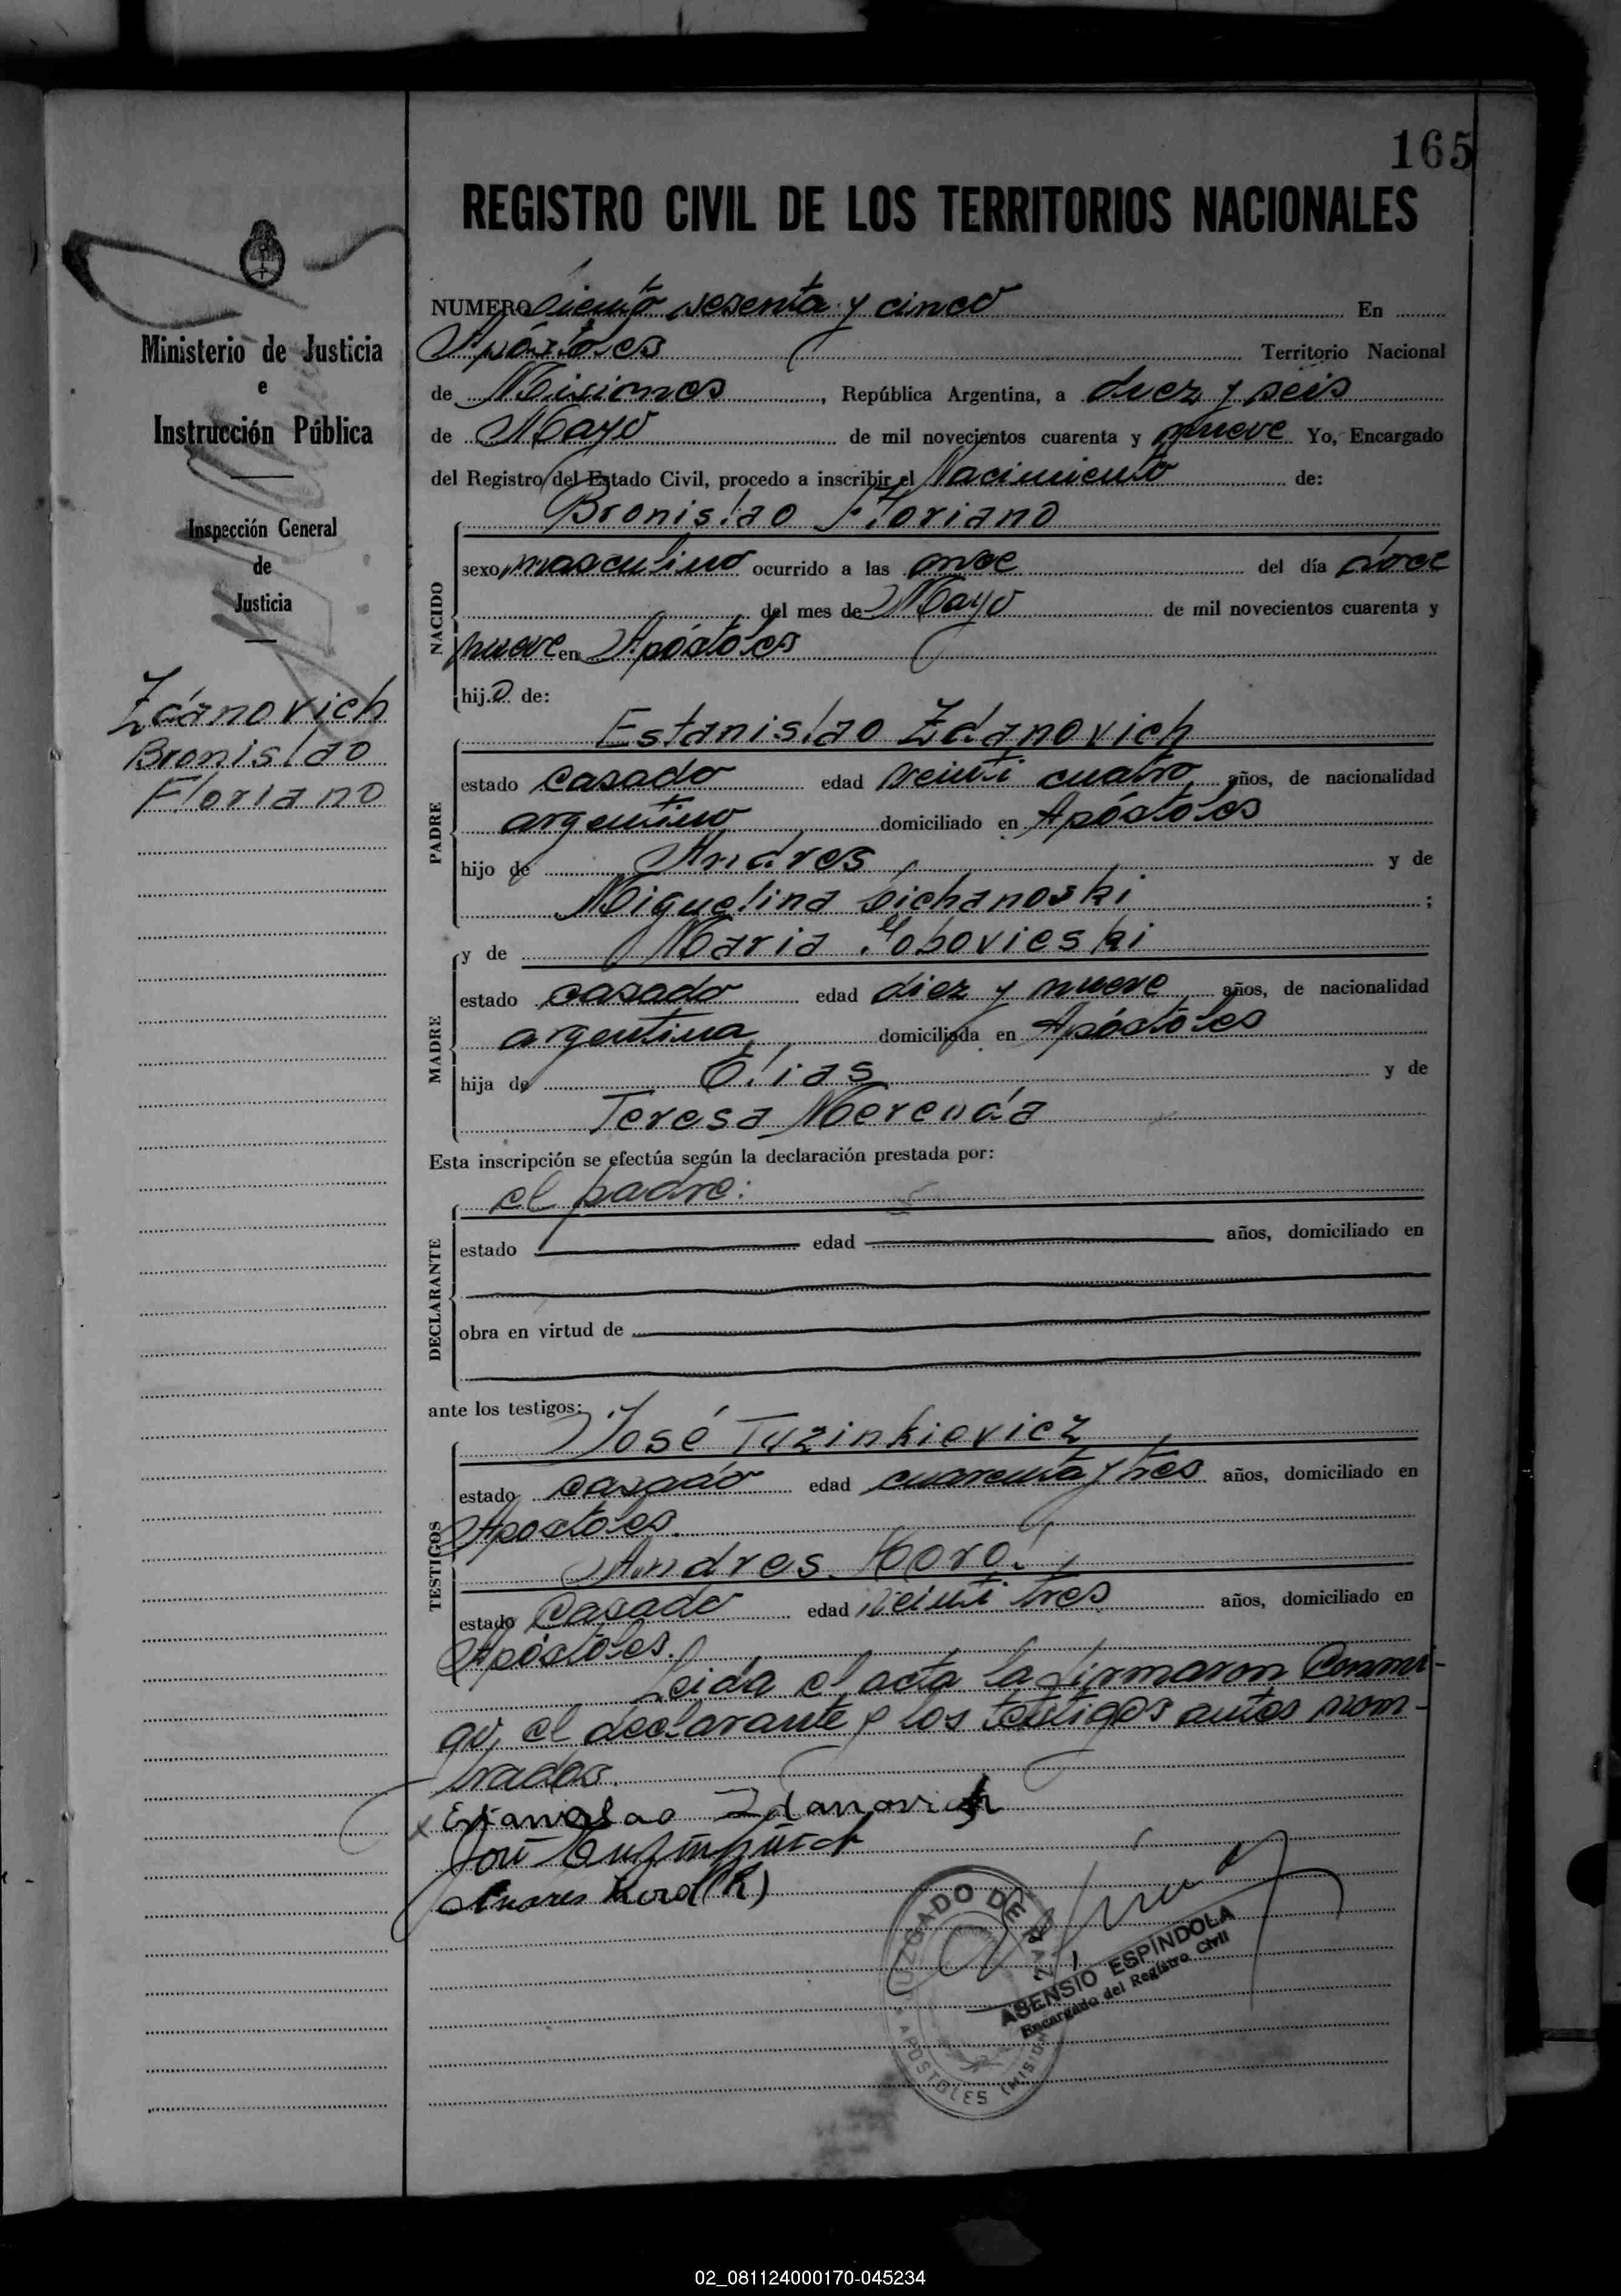 165
REGISTRO CIVIL DE LOS TERRITORIOS NACIONALES
Ministerio de Justicia
e
Instrucción Pública
Inspección General
de
Justicia
Zdanovich
Bronislao
Floriano
NUMERO Ciento sesenta y cinco En
Apóstoles Territorio Nacional
de Misiones, República Argentina, a diez y seis
de Mayo de mil novecientos cuarenta y nueve Yo, Encargado
del Registro del Estado Civil, procedo a inscribir el Nacimiento de:
Bronislao Floriano
NACIDO
sexo masculino ocurrido a las once del día doce
del mes de Mayo de mil novecientos cuarenta y
nueve en Apóstoles
hijo de:
PADRE
Estanislao Zdanovich
estado casado edad veinti cuatro años, de nacionalidad
argentino domiciliado en Apóstoles
hijo de Andres y de
Miguelina Cichanoski ;
MADRE
y de Maria Gobovieski
estado casado edad diez y nueve años, de nacionalidad
argentina domiciliada en Apóstoles
hija de Elias y de
Teresa Merenda
Esta inscripción se efectúa según la declaración prestada por:
DECLARANTE
el padre:
estado edad años, domiciliado en
obra en virtud de
ante los testigos:
TESTIGOS
José Tuzinkievicz
estado casado edad cuarenta y tres años, domiciliado en
Apostoles.
Andres Koro.
estado Casado edad veinti tres años, domiciliado en
Apóstoles.
Leida el acta la firmaron Conmi-
go, el declarante y los testigos antes nom-
brados.
x Estanislao Zdanovich
José
Andres Koro (h)
JUZGADO DE PAZ
APOSTOLES (MISIONES)
ASENSIO ESPINDOLA
Encargado del Registro Civil
02_081124000170-045234